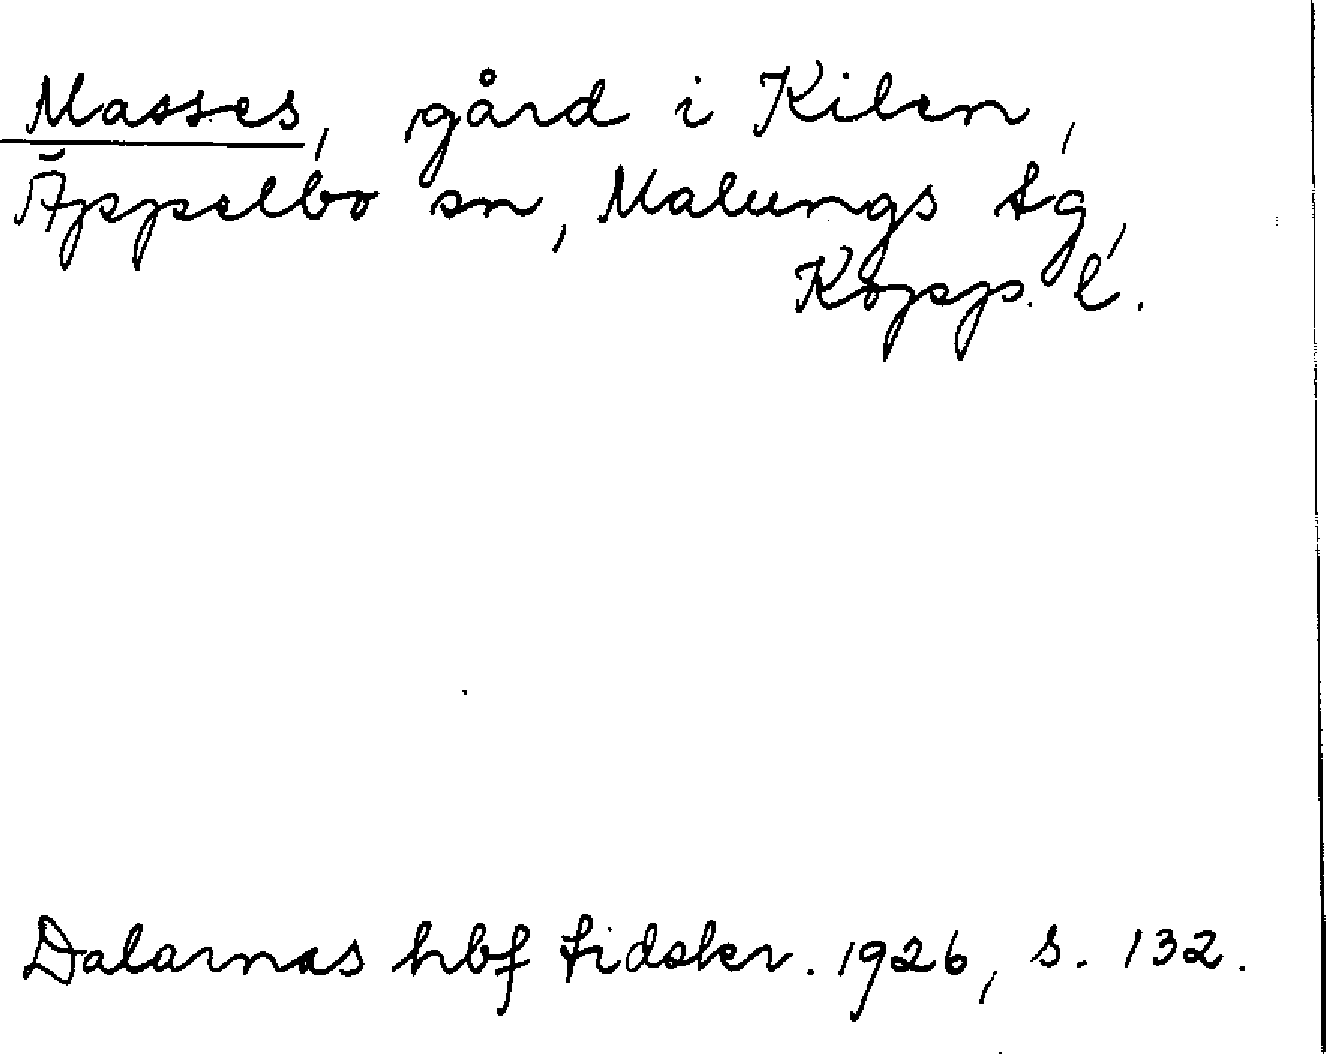 Masses, gård i Kilen,
Äppelbo sn, Malungs tg,
Kopp. l.
Dalarnas hbf tidskr. 1926, s. 132.